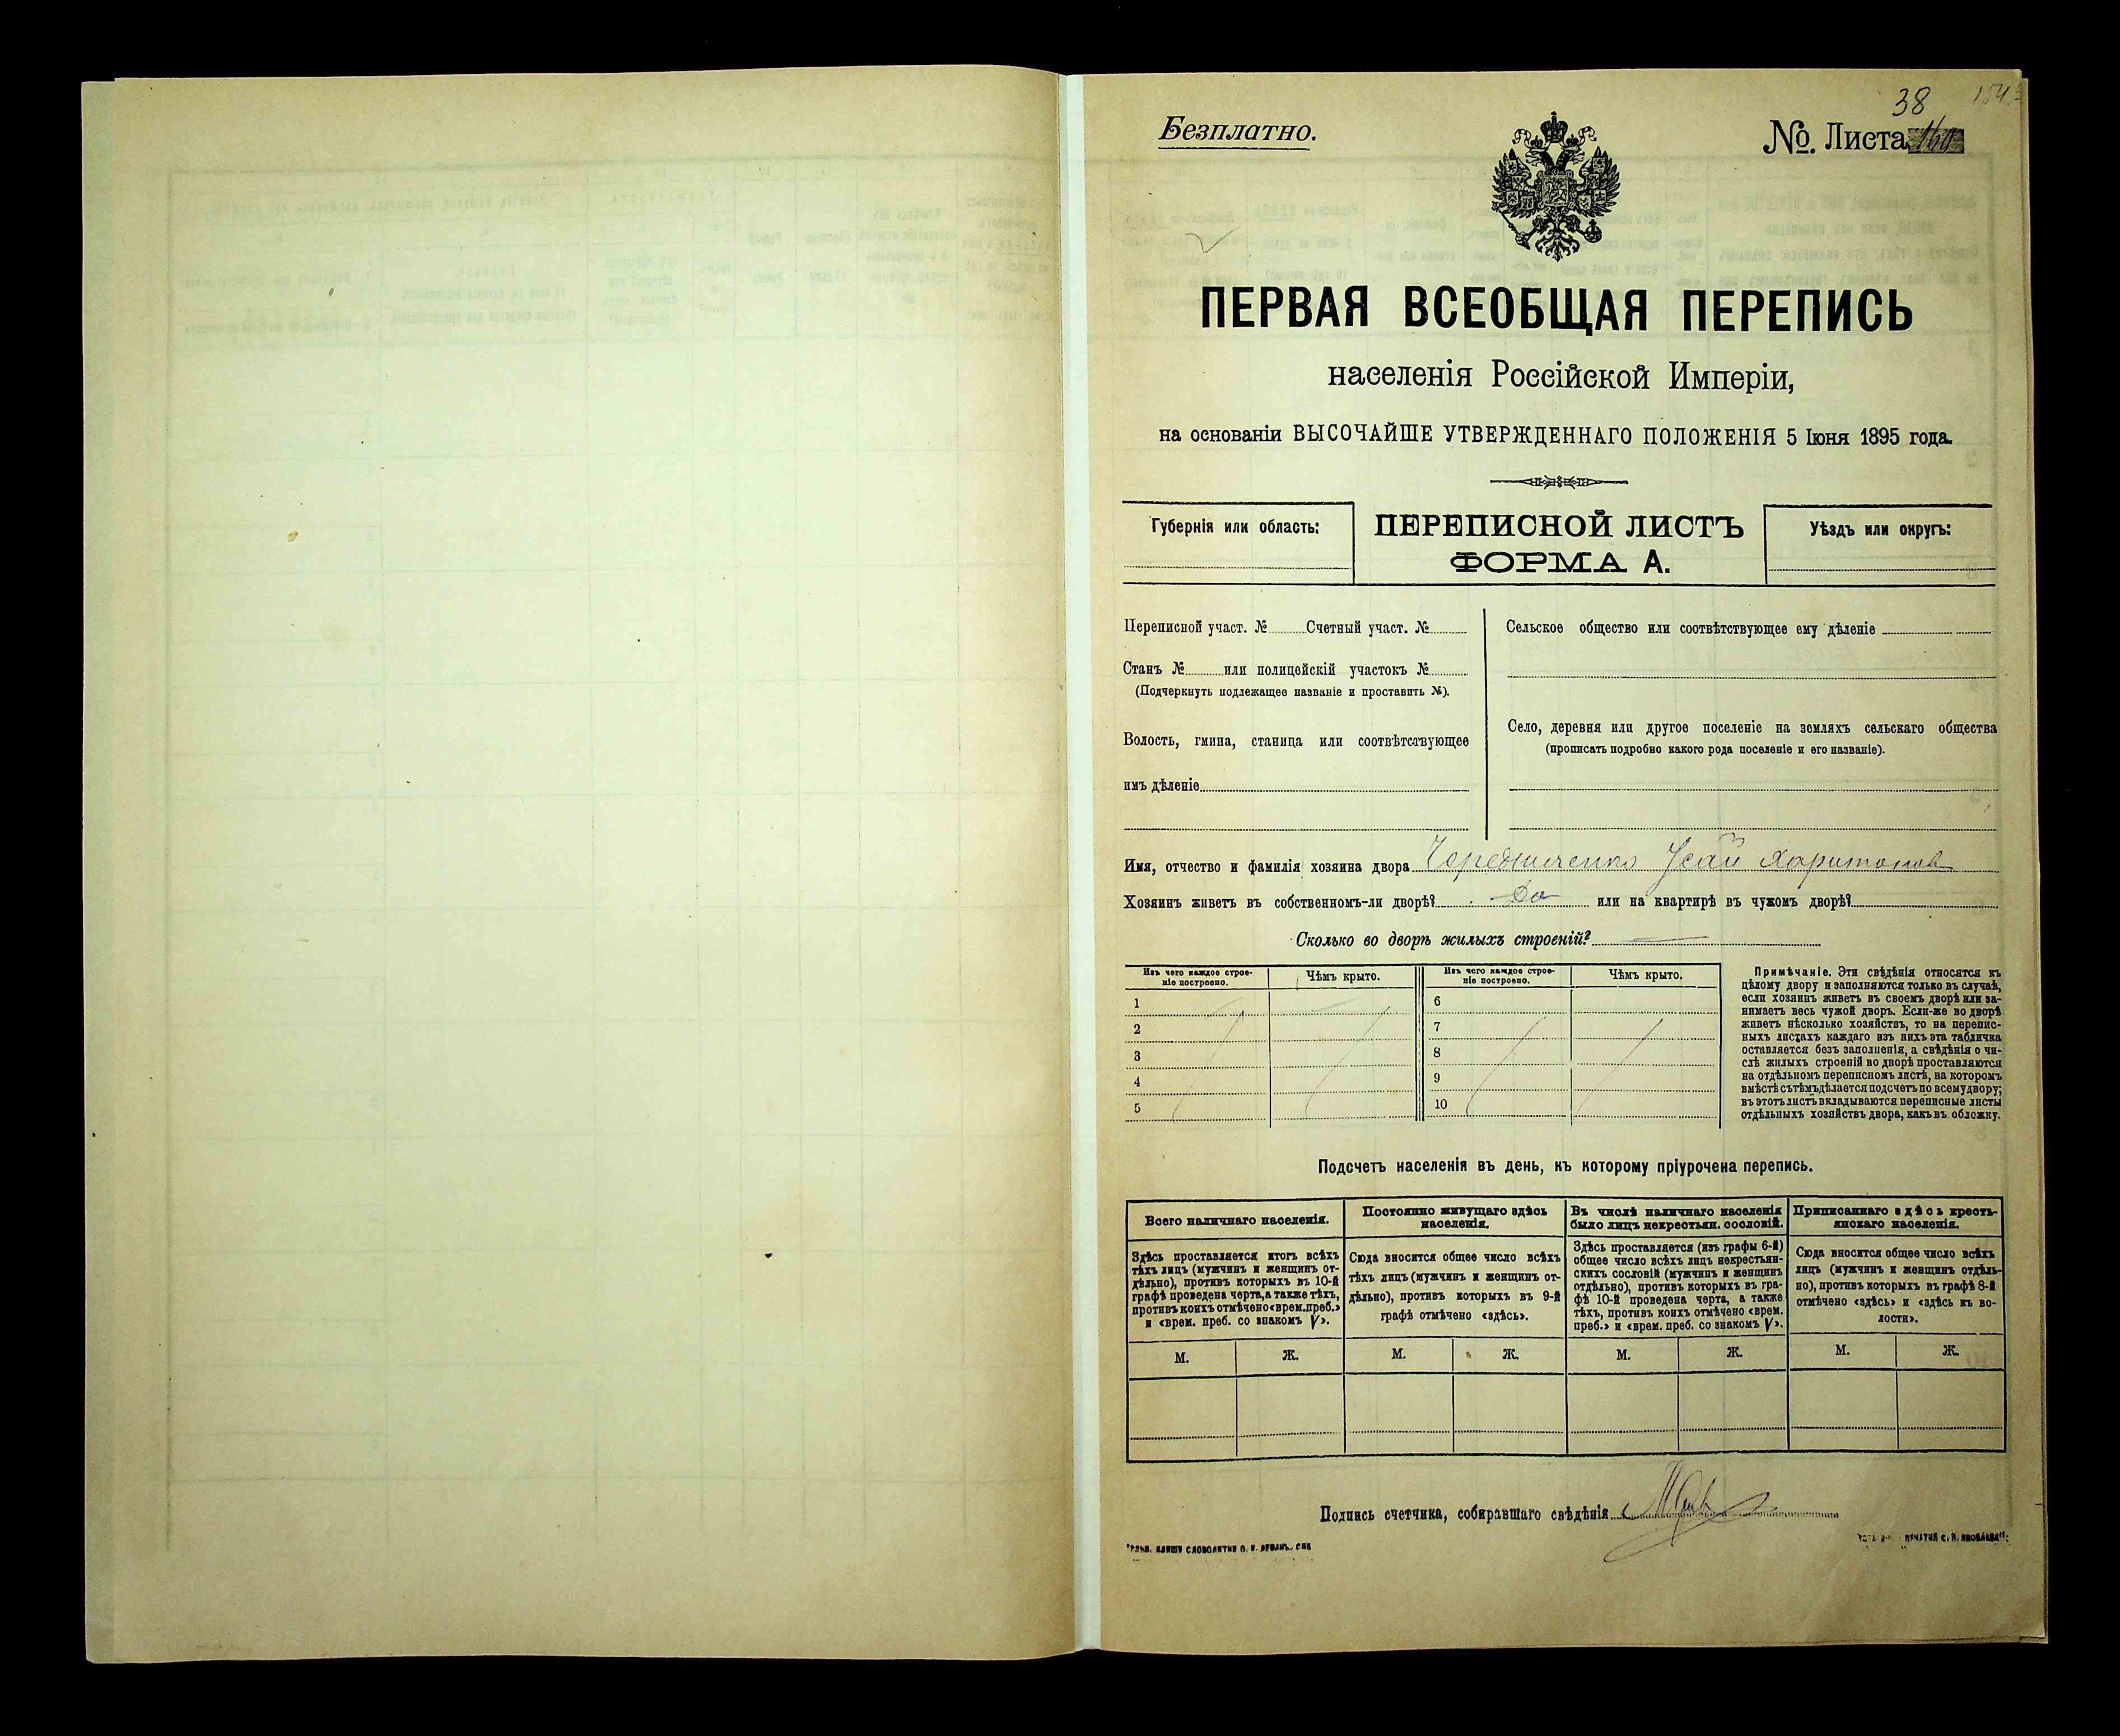 38
Безплатно.
№. Листа
ПЕРВАЯ ВСЕОБЩАЯ ПЕРЕПИСЬ
населенія Россійской Имперіи,
на основаніи ВЫСОЧАЙШЕ УТВЕРЖДЕННАГО ПОЛОЖЕНІЯ 5 Іюня 1895 года.
Губернія или область:
ПЕРЕПИСНОЙ ЛИСТЪ
ФОРМА А.
Уѣздъ или округъ:
Переписной участ. № Счетный участ. №
Станъ № или полицейскій участокъ №
(Подчеркнуть подлежащее названіе и проставить №).
Волость, гмина, станица или соотвѣтствующее
имъ дѣленіе
Сельское общество или соотвѣтствующее ему дѣленіе
Село, деревня или другое поселеніе на земляхъ сельскаго общества
(прописать подробно какого рода поселеніе и его названіе).
Имя, отчество и фамилія хозяина двора Чередниченко Исай Харитонов
Хозяинъ живетъ въ собственномъ-ли дворѣ? Да или на квартирѣ въ чужомъ дворѣ?
Сколько во дворѣ жилыхъ строеній?
Изъ чего каждое строе-
ніе построено.
Чѣмъ крыто.
1
2
3
4
5
Изъ чего каждое строе-
ніе построено.
Чѣмъ крыто.
6
7
8
9
10
Примѣчаніе. Эти свѣдѣнія относятся къ
цѣлому двору и заполняются только въ случаѣ,
если хозяинъ живетъ въ своемъ дворѣ или за-
нимаетъ весь чужой дворъ. Если-же во дворѣ
живетъ нѣсколько хозяйствъ, то на перепис-
ныхъ листахъ каждаго изъ нихъ эта табличка
оставляется безъ заполненія, а свѣдѣнія о чи-
слѣ жилыхъ строеній во дворѣ проставляются
на отдѣльномъ переписномъ листѣ, на которомъ
вмѣстѣ съ тѣмъ дѣлается подсчетъ по всему двору;
въ этотъ листъ вкладываются переписные листы
отдѣльныхъ хозяйствъ двора, какъ въ обложку.
Подсчетъ населенія въ день, къ которому пріурочена перепись.
Всего наличнаго населенія.
Здѣсь проставляется итогъ всѣхъ
тѣхъ лицъ (мужчинъ и женщинъ от-
дѣльно), противъ которыхъ въ 10-й
графѣ проведена черта, а также тѣхъ,
противъ коихъ отмѣчено «врем. преб.»
и «врем. преб. со знакомъ V».
Постоянно живущаго здѣсь
населенія.
Сюда вносится общее число всѣхъ
тѣхъ лицъ (мужчинъ и женщинъ от-
дѣльно), противъ которыхъ въ 9-й
графѣ отмѣчено «здѣсь».
Въ числѣ наличнаго населенія
было лицъ некрестьян. сословій.
Здѣсь проставляется (изъ графы 6-й)
общее число всѣхъ лицъ некрестьян-
скихъ сословій (мужчинъ и женщинъ
отдѣльно), противъ которыхъ въ гра-
фѣ 10-й проведена черта, а также
тѣхъ, противъ коихъ отмѣчено «врем.
преб.» и «врем. преб. со знакомъ V».
Приписаннаго здѣсь кресть-
янскаго населенія.
Сюда вносится общее число всѣхъ
лицъ (мужчинъ и женщинъ отдѣль-
но), противъ которыхъ въ графѣ 8-й
отмѣчено «здѣсь» и «здѣсь къ во-
лости».
М. Ж. М. Ж. М. Ж. М. Ж.
Подпись счетчика, собиравшаго свѣдѣнія